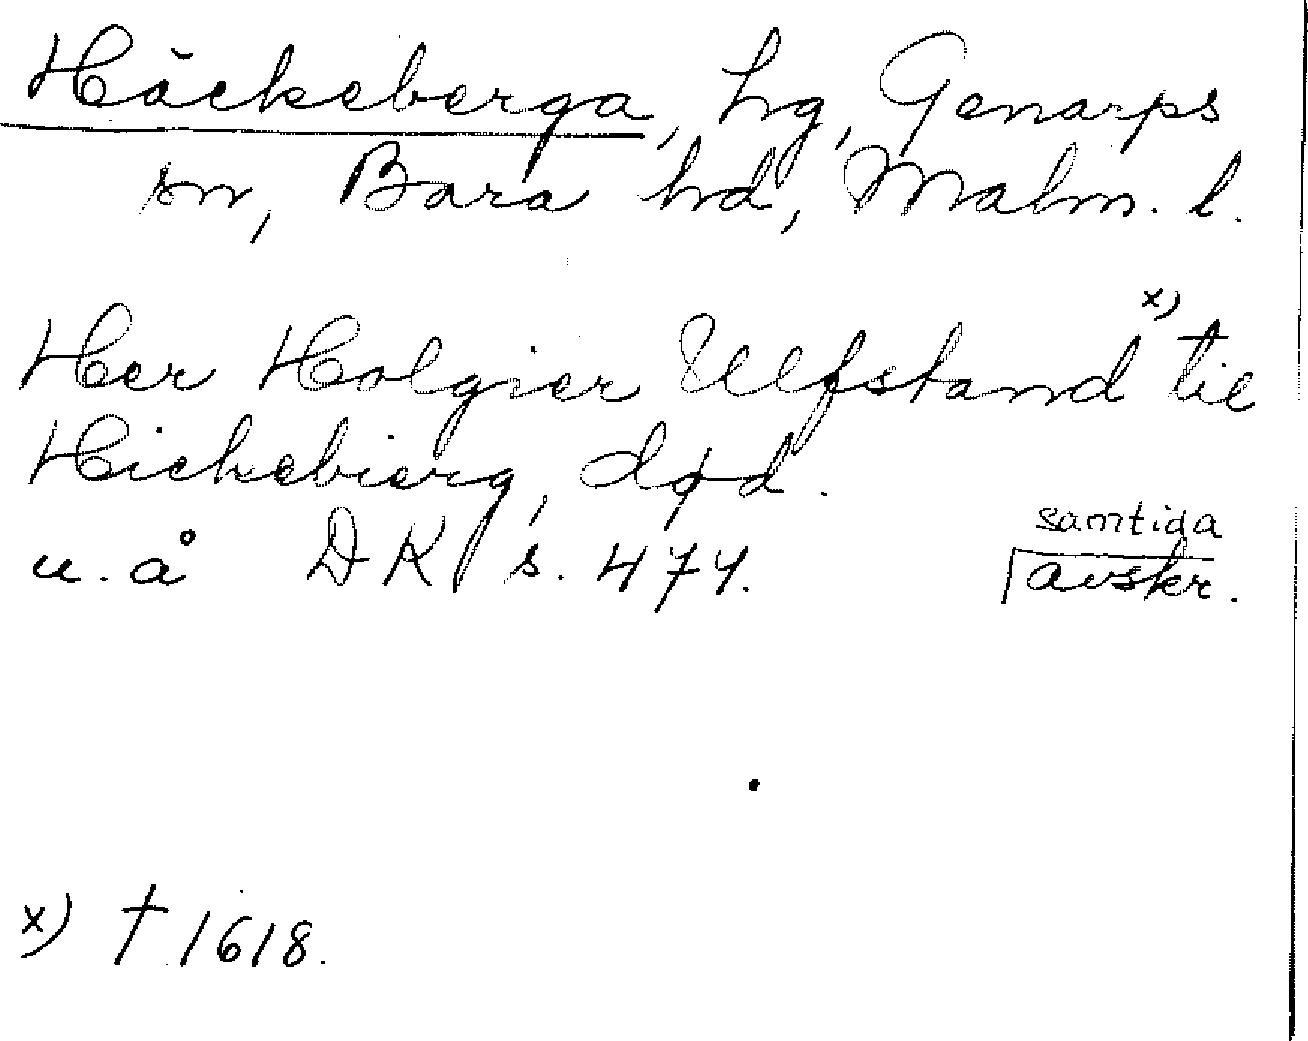 Häckeberga, hg, Genarps
sn, Bara hd, Malm. l.
Her Holgier Ulfstand x) til
Hickebierg, død.
u. å DK s. 474.
samtida
avskr.
x) † 1618.